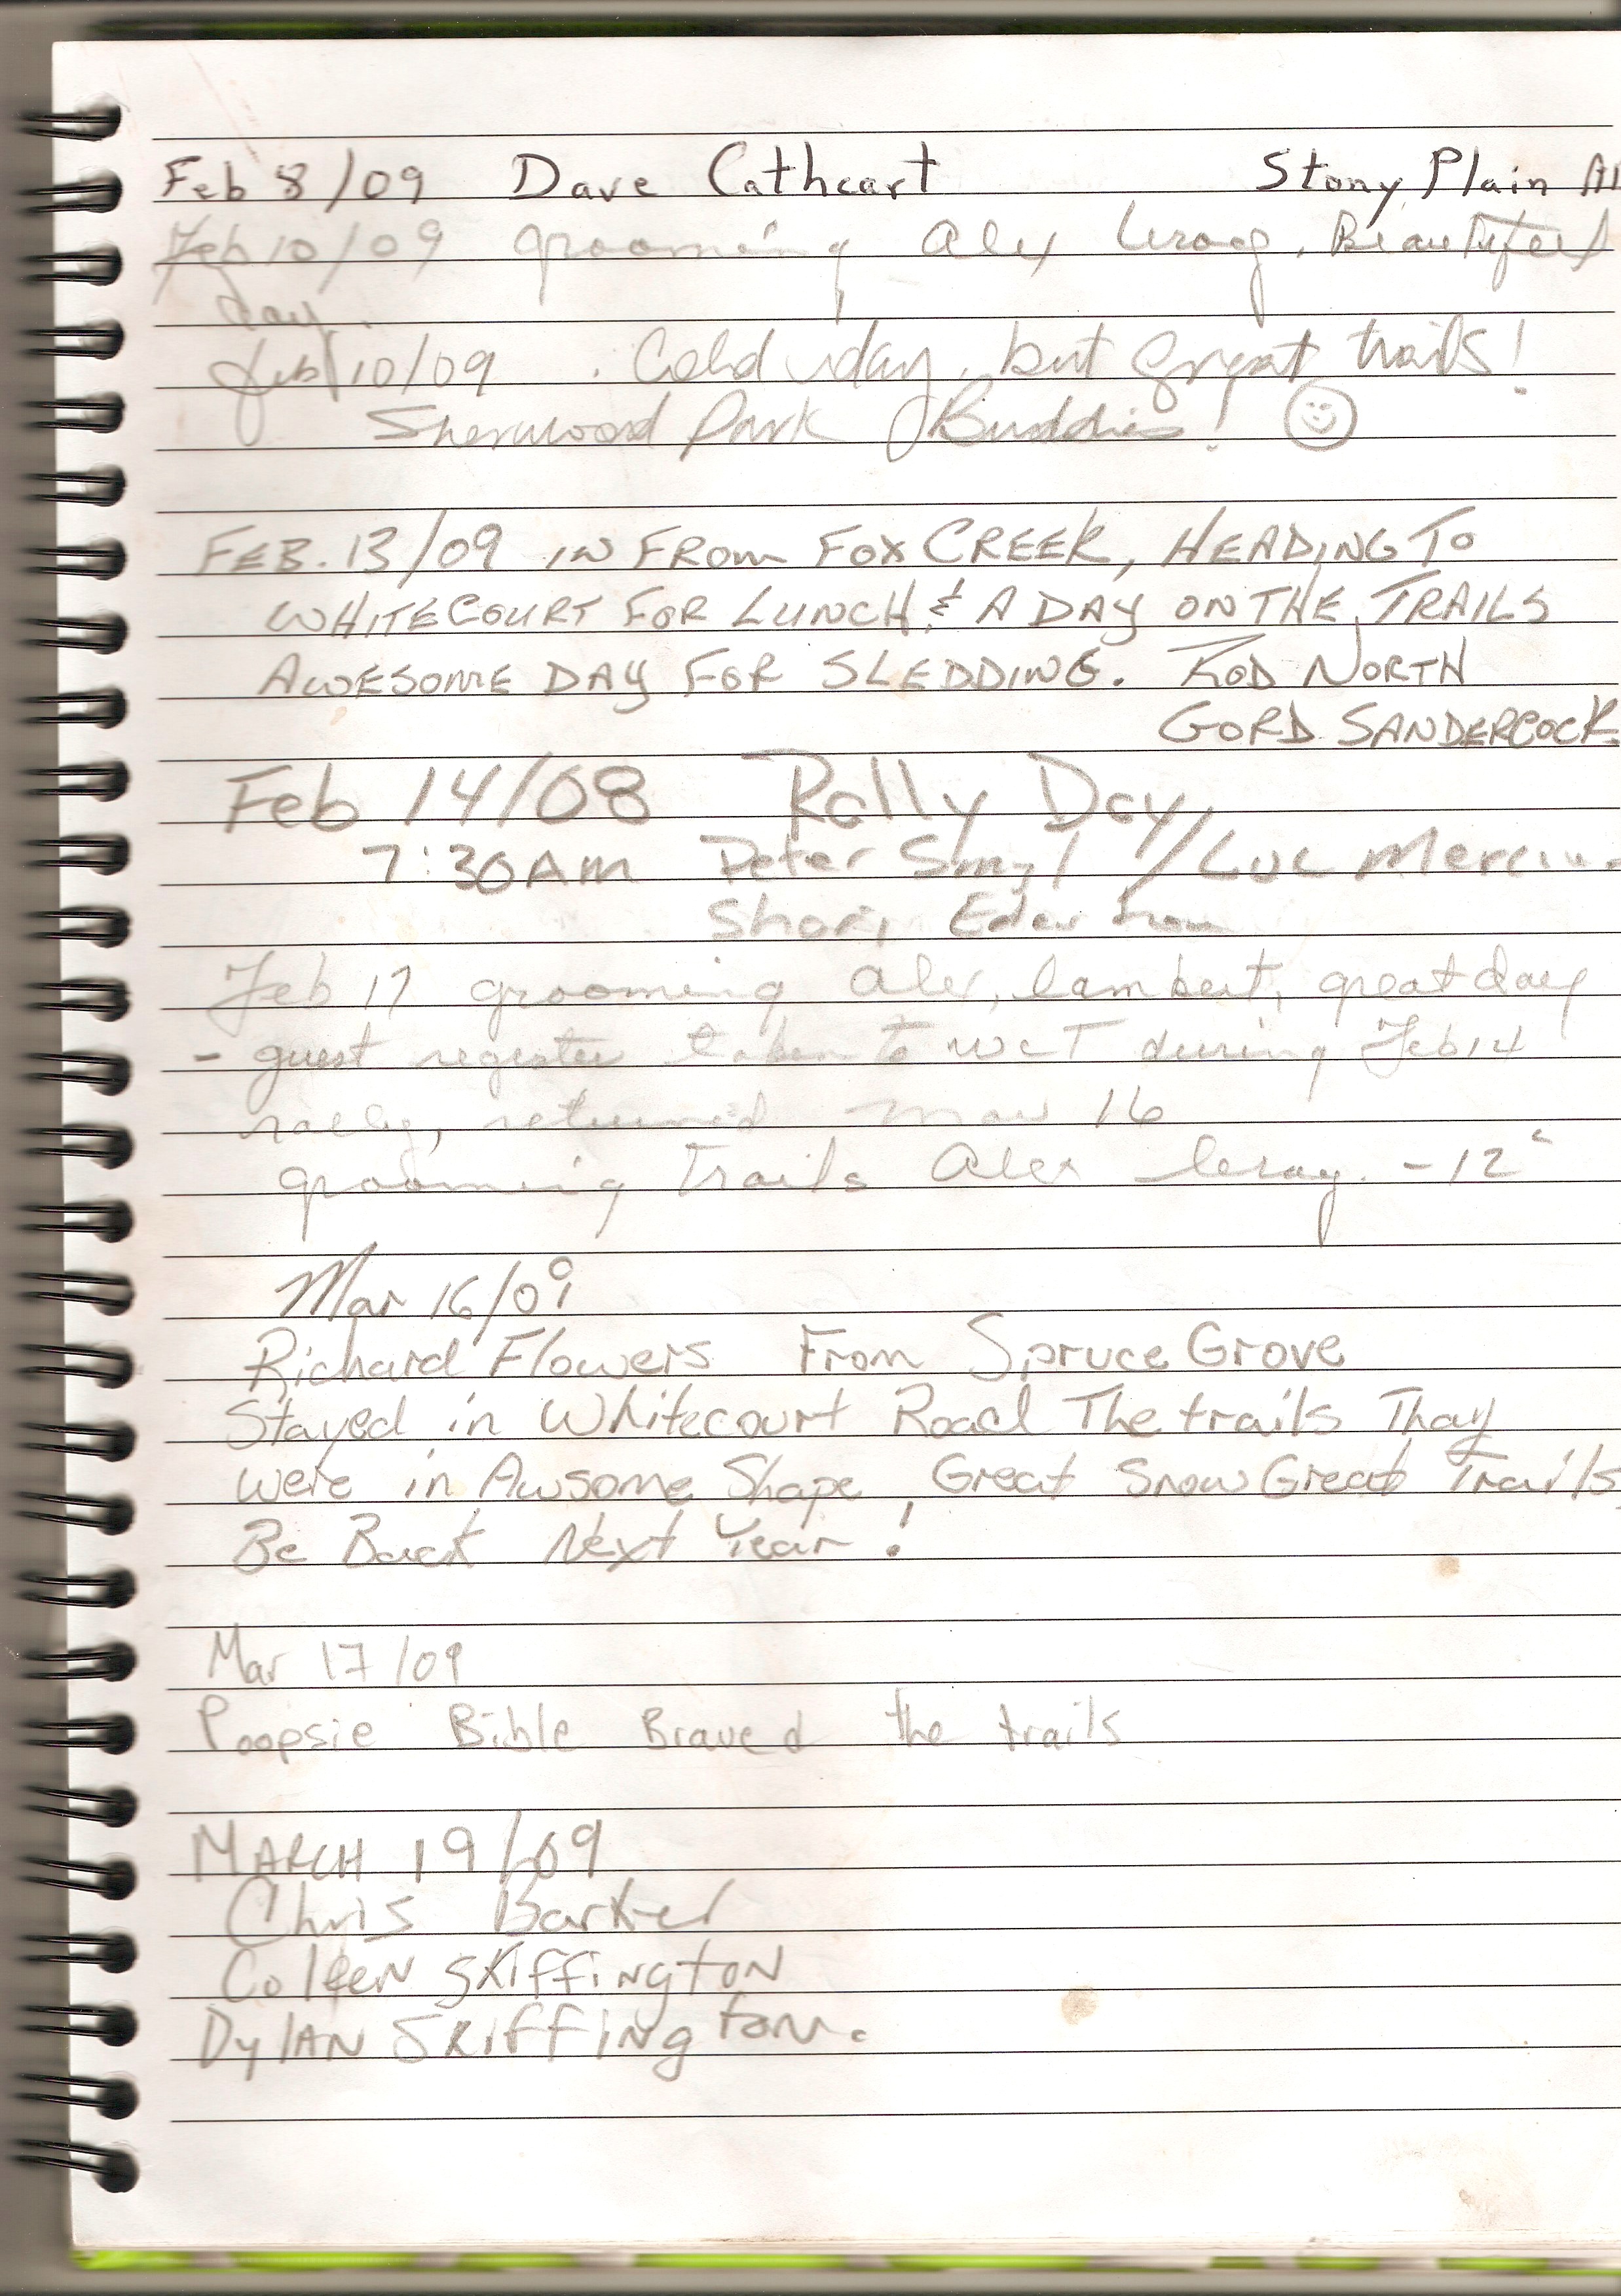 Feb 8/09 Dave Cathcart Stony Plain
Feb 10/09 grooming Alex Leroy, Beautiful
day.
Feb 10/09 . Cold day, but great trails!
Sherwood Park Buddies!
FEB. 13/09 IN FROM FOX CREEK, HEADING TO
WHITECOURT FOR LUNCH & A DAY ON THE TRAILS
AWESOME DAY FOR SLEDDING. ROD NORTH
GORD SANDERCOCK
Feb 14/08 Rally Day
7:30AM Peter Smyl / Luc
Shari
Feb 17 grooming Alex, lambert, great day
- guest register taken to WCT during Feb 14
rally, returned Mar 16
grooming trails Alex leroy. -12°
Mar 16/09
Richard Flowers From Spruce Grove
Stayed in Whitecourt Road The trails Thay
were in Awsome Shape, Great Snow Great Trails
Be Back Next Year!
Mar 17/09
Poopsie Bible Braved the trails
MARCH 19/09
Chris Barker
Colleen SKiffiNgtoN
DylAN SKiffiNgton.